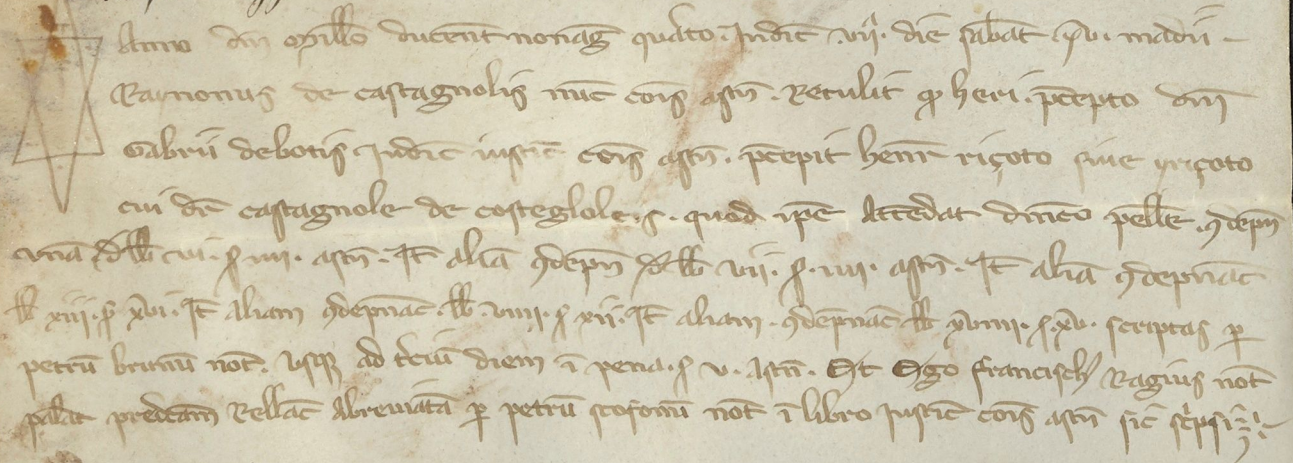 Anno dnī millō ducent nonag quarto. Indic̄ vii. die sabat xv. madii
Raynonus de castagnolis nunc cōis astn̄. Retulit qd heri. p̄cepto dnī
Gabrii de botis Iudic̄ iustic̄ cōis astn̄. p̄cepit henr̄ riçoto siue yriçoto
cui dr̄ castagnole de costeglole. s. quod ipē Attendat
unā lb vi. s iiii. astn̄. It aliā 9depn̄ lb vii. s. iiii. astn̄. It aliā 9depnac̄
lb xiii. s xvi. It aliam 9depnac̄. lb. viiii. s xii. It aliam. 9depnac̄ lb xviiii. s. xv. scriptas p
petrū brunū not̄. usq ad t̄ciū diem ī pena. s v. astn̄. Et Ego francisc Ragius not̄
palat̄ predcam Rellac̄ Abreuiatā p petrū not̄ ī libro Iustic̄ cōis astn̄ sic sc̄psi